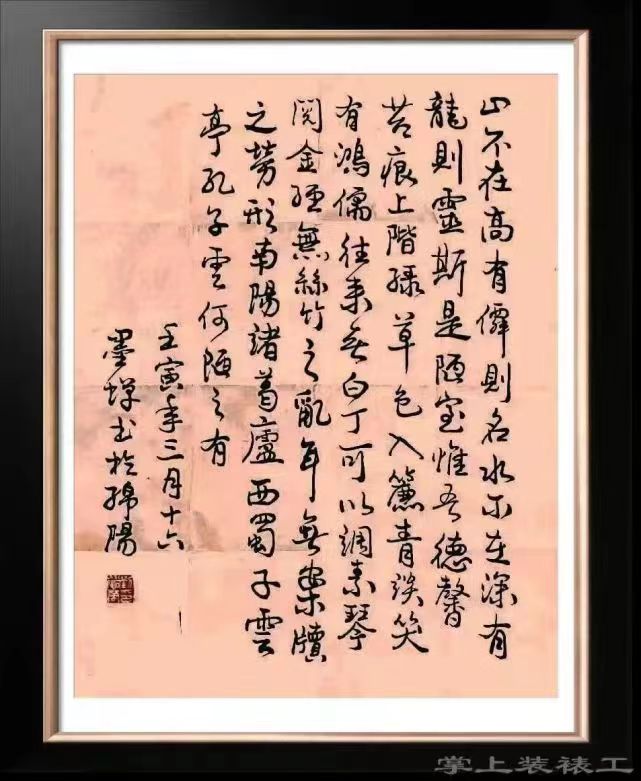 山不在高有僊則名水不在深有
龍則靈斯是陋室惟吾德馨
苔痕上階緑草色入簾青談笑
有鴻儒往来无白丁可以調素琴
閱金經無絲竹之亂耳無案牘
之勞形南陽諸葛廬西蜀子雲
亭孔子雲何陋之有
壬寅年三月十六
墨书於綿陽
掌上装裱工